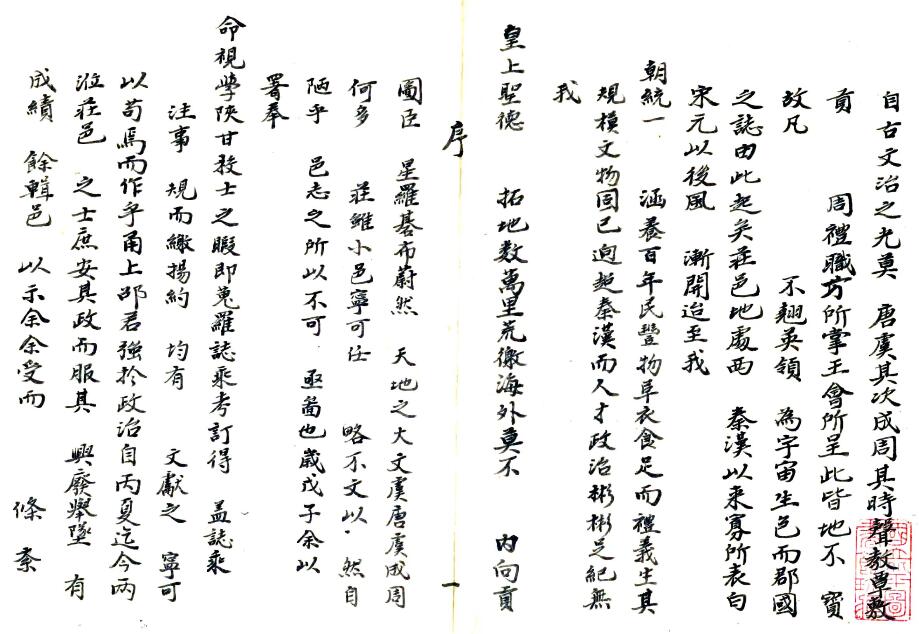 自古文治之光莫 唐虞其次成周其時聲教覃敷
貢 周禮職方所掌王會所呈此皆地不 寶
故凡 不翹英領 為宇宙生色而郡國
之誌由此起矣莊邑地處西 秦漢以來寡所表白
宋元以後風 漸開迨至我
朝統一 涵養百年民豐物阜衣食足而禮義生其
規模文物固已逈越秦漢而人才政治彬彬足紀無
我
皇上聖德 拓地數萬里荒徼海外莫不 內向貢
序
一
圖臣 星羅碁布蔚然 天地之大文虞唐虞成周
何多 莊雖小邑寧可任 略不文以 然自
陋乎 邑志之所以不可 亟畨也歲戊子余以
署奉
命視學陝甘校士之暇即蒐羅誌乘考訂得 蓋誌乘
注事 規而繳揚約 均有 文獻之 寧可
以苟焉而作乎甬上邵君強於政治自丙夏迄今兩
涖莊邑 之士庶安其政而服其 興廢舉墜 有
成績 餘輯邑 以示余余受而 條素